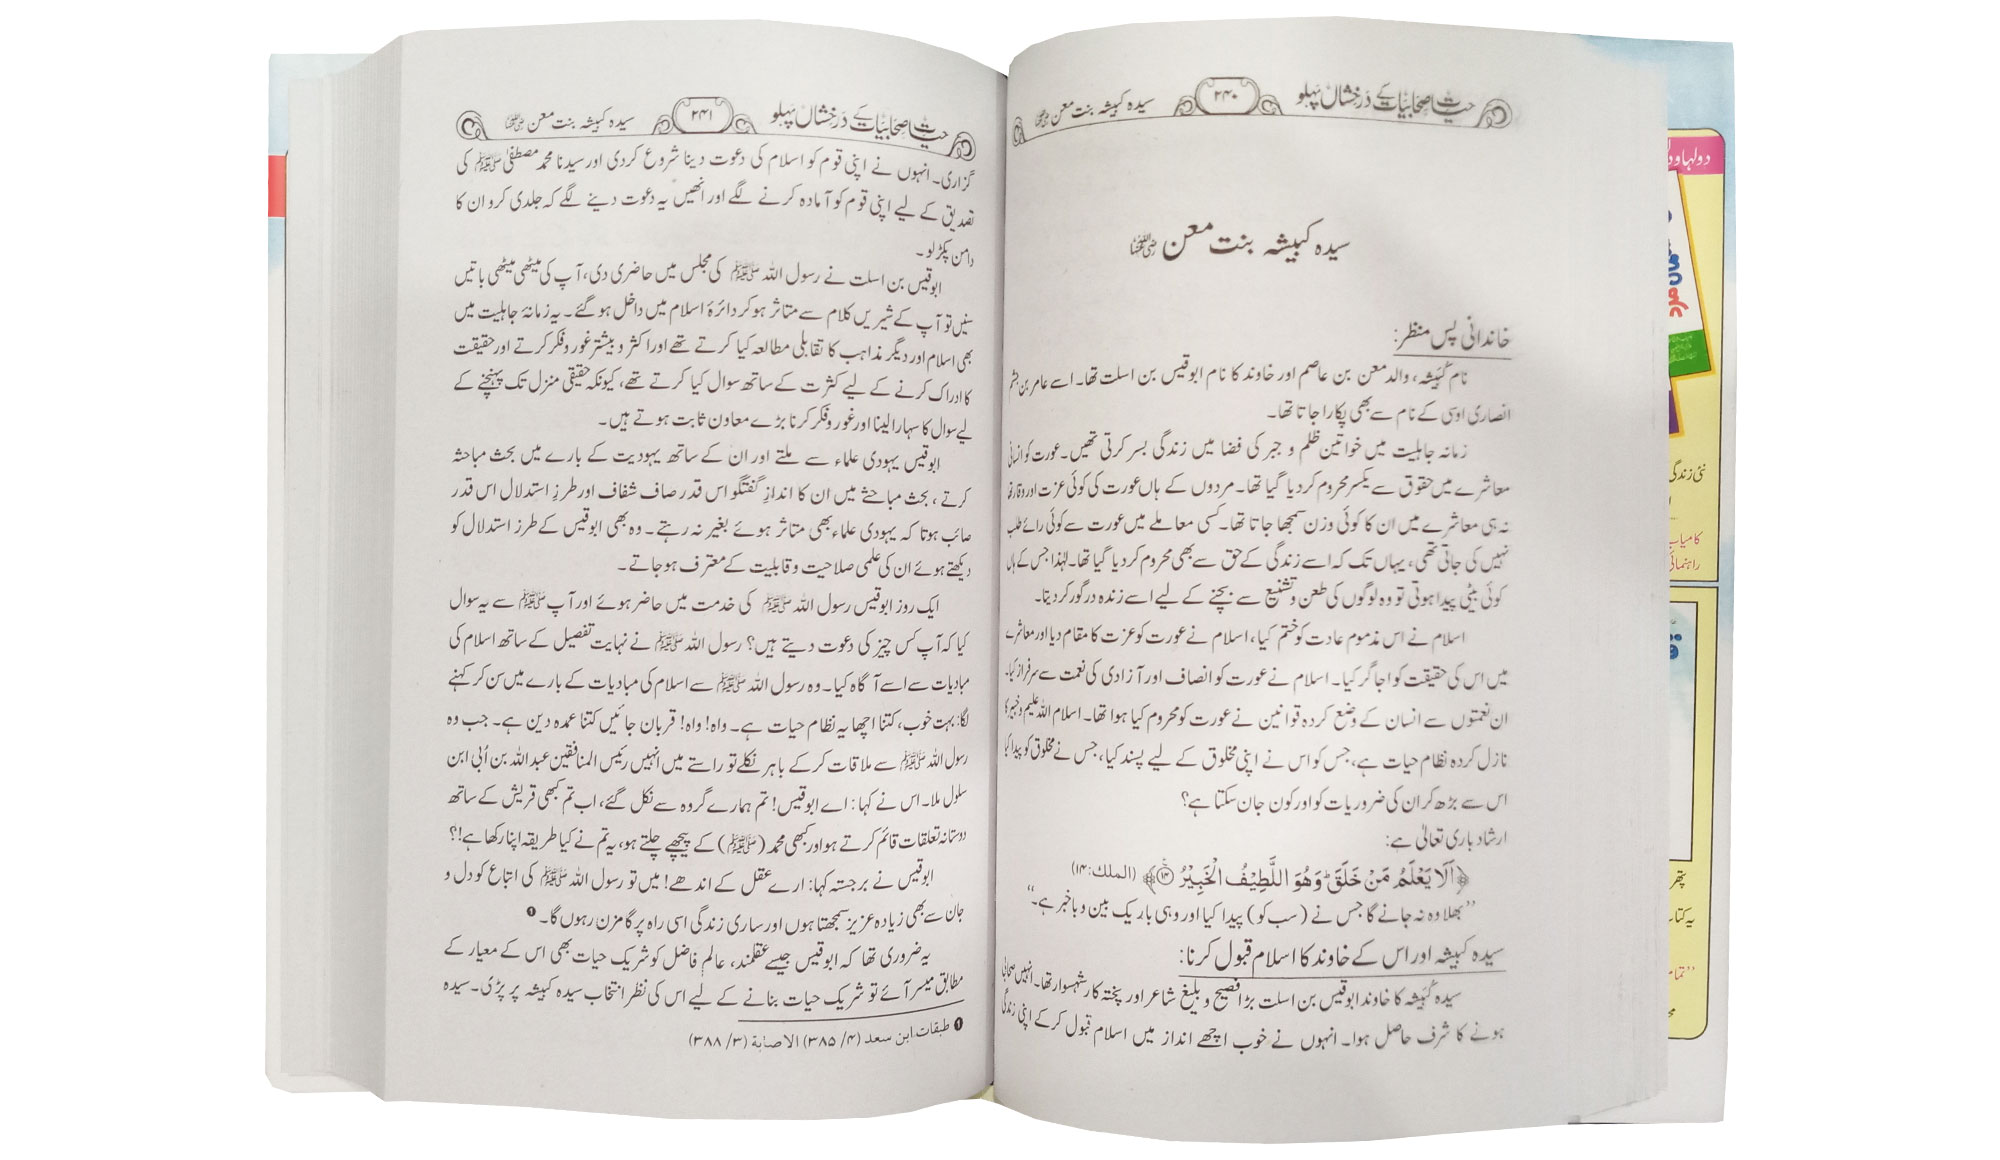 حیات صحابیات کے درخشاں پہلو
۲۴۰
سیدہ کبیشہ بنت معن رضی اللہ عنہا
سیدہ کبیشہ بنت معن رضی اللہ عنہا
خاندانی پس منظر:
نام کُبَیْشہ، والد معن بن عاصم اور خاوند کا نام ابوقیس بن اسلت تھا۔ اسے عامر بن جشم
انصاری اوسی کے نام سے بھی پکارا جاتا تھا۔
زمانہ جاہلیت میں خواتین ظلم و جبر کی فضا میں زندگی بسر کرتی تھیں۔ عورت کو انسانی
معاشرے میں حقوق سے یکسر محروم کر دیا گیا تھا۔ مردوں کے ہاں عورت کی کوئی عزت اور وقار تھا
نہ ہی معاشرے میں ان کا کوئی وزن سمجھا جاتا تھا۔ کسی معاملے میں عورت سے کوئی رائے طلب
نہیں کی جاتی تھی، یہاں تک کہ اسے زندگی کے حق سے بھی محروم کر دیا گیا تھا۔ لہٰذا جس کے ہاں
کوئی بیٹی پیدا ہوتی تو وہ لوگوں کی طعن و تشنیع سے بچنے کے لیے اسے زندہ درگور کر دیتا۔
اسلام نے اس مذموم عادت کو ختم کیا، اسلام نے عورت کو عزت کا مقام دیا اور معاشرے
میں اس کی حقیقت کو اجاگر کیا۔ اسلام نے عورت کو انصاف اور آزادی کی نعمت سے سرفراز کیا۔
ان نعمتوں سے انسان کے وضع کردہ قوانین نے عورت کو محروم کیا ہوا تھا۔ اسلام اللہ علیم و خبیر کا
نازل کردہ نظام حیات ہے، جس کو اس نے اپنی مخلوق کے لیے پسند کیا، جس نے مخلوق کو پیدا کیا
اس سے بڑھ کر ان کی ضروریات کو اور کون جان سکتا ہے؟
ارشاد باری تعالیٰ ہے:
﴿اَلَا یَعْلَمُ مَنْ خَلَقَ ؕ وَهُوَ اللَّطِیْفُ الْخَبِیْرُ ⑭﴾ (الملک: ۱۴)
’’بھلا وہ نہ جانے گا جس نے (سب کو) پیدا کیا اور وہی باریک بین و باخبر ہے۔‘‘
سیدہ کبیشہ اور اس کے خاوند کا اسلام قبول کرنا:
سیدہ کُبَیْشہ کا خاوند ابوقیس بن اسلت بڑا فصیح و بلیغ شاعر اور پختہ کار شہسوار تھا۔ انہیں صحابی
ہونے کا شرف حاصل ہوا۔ انہوں نے خوب اچھے انداز میں اسلام قبول کر کے اپنی زندگی
حیات صحابیات کے درخشاں پہلو
۲۴۱
سیدہ کبیشہ بنت معن رضی اللہ عنہا
گزاری۔ انہوں نے اپنی قوم کو اسلام کی دعوت دینا شروع کر دی اور سیدنا محمد مصطفیٰ ﷺ کی
تصدیق کے لیے اپنی قوم کو آمادہ کرنے لگے اور انھیں یہ دعوت دینے لگے کہ جلدی کرو ان کا
دامن پکڑ لو۔
ابوقیس بن اسلت نے رسول اللہ ﷺ کی مجلس میں حاضری دی، آپ کی میٹھی میٹھی باتیں
سنیں تو آپ کے شیریں کلام سے متاثر ہو کر دائرۂ اسلام میں داخل ہو گئے۔ یہ زمانۂ جاہلیت میں
بھی اسلام اور دیگر مذاہب کا تقابلی مطالعہ کیا کرتے تھے اور اکثر و بیشتر غور و فکر کرتے اور حقیقت
کا ادراک کرنے کے لیے کثرت کے ساتھ سوال کیا کرتے تھے، کیونکہ حقیقی منزل تک پہنچنے کے
لیے سوال کا سہارا لینا اور غور و فکر کرنا بڑے معاون ثابت ہوتے ہیں۔
ابوقیس یہودی علماء سے ملتے اور ان کے ساتھ یہودیت کے بارے میں بحث مباحثہ
کرتے، بحث مباحثے میں ان کا اندازِ گفتگو اس قدر صاف شفاف اور طرزِ استدلال اس قدر
صائب ہوتا کہ یہودی علماء بھی متاثر ہوئے بغیر نہ رہتے۔ وہ بھی ابوقیس کے طرز استدلال کو
دیکھتے ہوئے ان کی علمی صلاحیت و قابلیت کے معترف ہو جاتے۔
ایک روز ابوقیس رسول اللہ ﷺ کی خدمت میں حاضر ہوئے اور آپ ﷺ سے یہ سوال
کیا کہ آپ کس چیز کی دعوت دیتے ہیں؟ رسول اللہ ﷺ نے نہایت تفصیل کے ساتھ اسلام کی
مبادیات سے اسے آگاہ کیا۔ وہ رسول اللہ ﷺ سے اسلام کی مبادیات کے بارے میں سن کر کہنے
لگا: بہت خوب، کتنا اچھا یہ نظام حیات ہے۔ واہ! واہ! قربان جائیں کتنا عمدہ دین ہے۔ جب وہ
رسول اللہ ﷺ سے ملاقات کر کے باہر نکلے تو راستے میں انہیں رئیس المنافقین عبداللہ بن اُبی ابن
سلول ملا۔ اس نے کہا: اے ابوقیس! تم ہمارے گروہ سے نکل گئے، اب تم کبھی قریش کے ساتھ
دوستانہ تعلقات قائم کرتے ہو اور کبھی محمد (ﷺ) کے پیچھے چلتے ہو، یہ تم نے کیا طریقہ اپنا رکھا ہے!؟
ابوقیس نے برجستہ کہا: ارے عقل کے اندھے! میں تو رسول اللہ ﷺ کی اتباع کو دل و
جان سے بھی زیادہ عزیز سمجھتا ہوں اور ساری زندگی اسی راہ پر گامزن رہوں گا۔ ❶
یہ ضروری تھا کہ ابوقیس جیسے عقلمند، عالم فاضل کو شریک حیات بھی اس کے معیار کے
مطابق میسر آئے تو شریک حیات بنانے کے لیے اس کی نظر انتخاب سیدہ کبیشہ پر پڑی۔ سیدہ
❶ طبقات ابن سعد (۴/ ۳۸۵) الاصابة (۳/ ۳۸۸)
دولہا و
نئی زندگی
کامیاب
راہنمائی
یہ کتاب